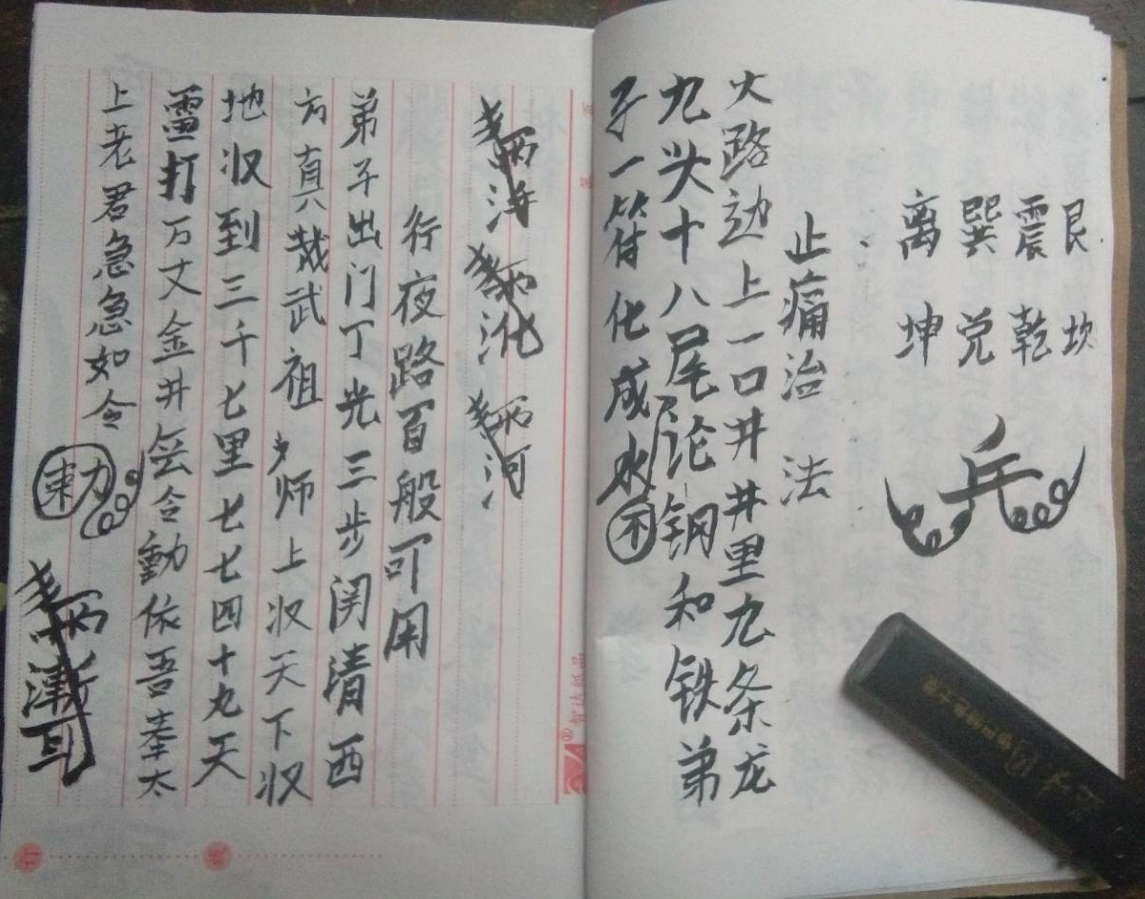 艮 坎
震 乾
巽 兑
离 坤
兵
止痛治法
火路边上一口井井里九条龙
九头十八尾论钢和铁弟
子一符化成水不
行夜路百般可用
弟子出门丁光三步関清西
方真武祖师上収天下収
地収到三千七里七七四十九天
雷打万丈金井令動依吾奉太
上老君急急如令